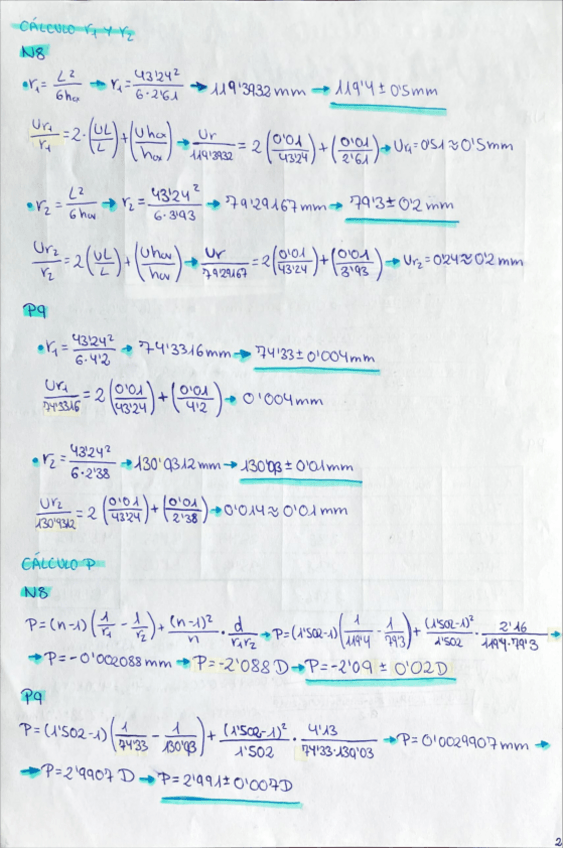 CÁLCULO r₁ Y r₂
N8
• r₁ = L²/6hₐᵥ → r₁ = 43'24²/6·2'61 → 119'3932 mm → 119'4 ± 0'5 mm
Ur₁/r₁ = 2·(UL/L) + (Uhₐᵥ/hₐᵥ) → Ur/119'3932 = 2(0'01/43'24) + (0'01/2'61) → Ur₁ = 0'51 ≈ 0'5 mm
• r₂ = L²/6hₐᵥ → r₂ = 43'24²/6·3'93 → 79'29167 mm → 79'3 ± 0'2 mm
Ur₂/r₂ = 2(UL/L) + (Uhₐᵥ/hₐᵥ) → Ur/79'29167 = 2(0'01/43'24) + (0'01/3'93) → Ur₂ = 0'24 ≈ 0'2 mm
P9
• r₁ = 43'24²/6·4'2 → 74'3316 mm → 74'33 ± 0'004 mm
Ur₁/74'3316 = 2(0'01/43'24) + (0'01/4'2) → 0'004 mm
• r₂ = 43'24²/6·2'38 → 130'9312 mm → 130'93 ± 0'01 mm
Ur₂/130'9312 = 2(0'01/43'24) + (0'01/2'38) → 0'014 ≈ 0'01 mm
CÁLCULO P
N8
P = (n-1)(1/r₁ - 1/r₂) + (n-1)²/n · d/r₁r₂ → P = (1'502-1)(1/119'4 - 1/79'3) + (1'502-1)²/1'502 · 2'16/119'4·79'3 →
→ P = -0'002088 mm → P = -2'088 D → P = -2'09 ± 0'02 D
P9
P = (1'502-1)(1/74'33 - 1/130'93) + (1'502-1)²/1'502 · 4'13/74'33·130'03 → P = 0'0029907 mm →
→ P = 2'9907 D → P = 2'991 ± 0'007 D
2